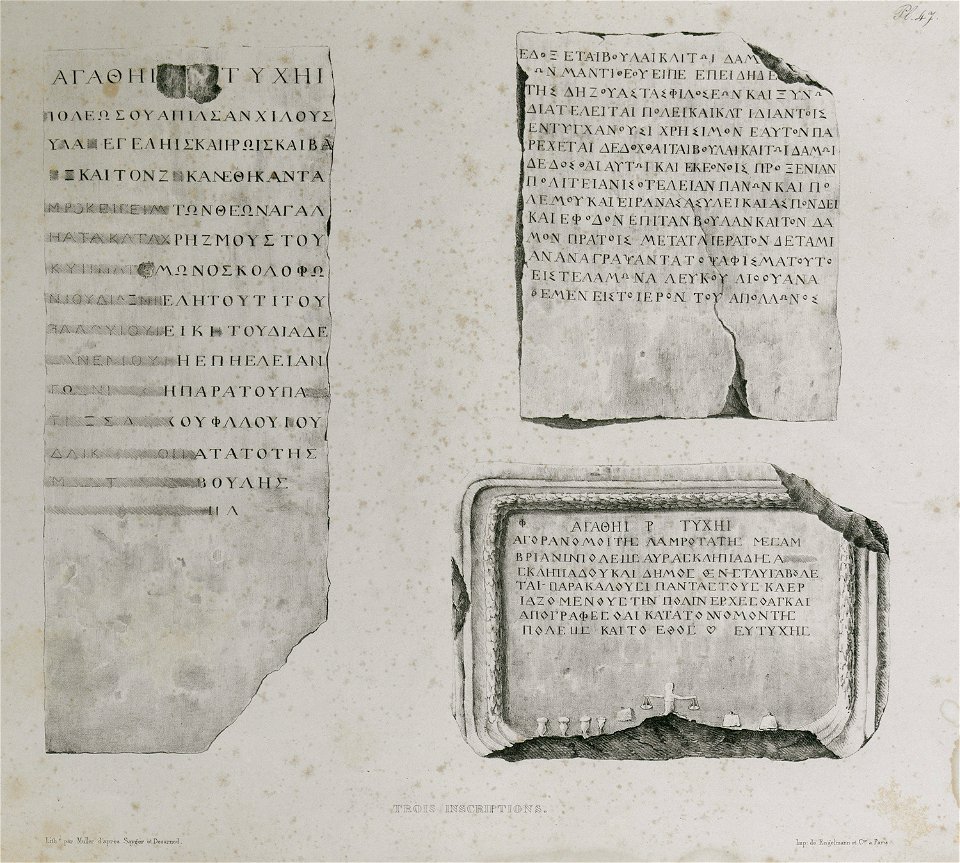 Pl. 47.
ΑΓΑΘΗΙ ΤΥΧΗΙ
ΠΟΛΕΩΣΟΥΑΠΙΛΣΑΝΧΙΛΟΥΣ
ΥΛΑ ΕΓΕΛΗΙΣΚΑΙΗΡΩΙΣΚΑΙΒΑ
ΣΚΑΙΤΟΝΖ ΚΑΝΕΘΙΚΑΝΤΑ
ΤΩΝΘΕΩΝΑΓΑΛ
ΗΑΤΑΚΑΤΑΧΡΗΖΜΟΥΣΤΟΥ
ΜΩΝΟΣΚΟΛΟΦΩ
ΕΛΗΤΟΥΤΙΤΟΥ
ΕΙΚΗ ΤΟΥΔΙΑΔΕ
ΗΕΠΗΕΛΕΙΑΝ
ΗΠΑΡΑΤΟΥΠΑ
ΟΥΦΛΛΟΥΙΟΥ
ΑΤΑΤΟΤΗΣ
ΒΟΥΛΗΣ
ΕΔΟΞΕΤΑΙΒΟΥΛΑΙΚΛΙΤΩΙ ΔΑΜ
ΩΝ ΜΑΝΤΙΘΕΟΥΕΙΠΕ ΕΠΕΙΔΗΔΕ
ΤΗΣ ΔΗΖΟΥΑΣΤΑΣΦΙΛΟΣΕΩΝ ΚΑΙΞΥΝΩ
ΔΙΑΤΕΛΕΙΤΑΙ ΠΟΛΕΙΚΑΙΚΑΤ ΙΔΙΑΝΤΟΙΣ
ΕΝΤΥΓΧΑΝΟΥΣΙ ΧΡΗΣΙΜΟΝ ΕΑΥΤΟΝΠΑ
ΡΕΧΕΤΑΙ ΔΕΔΟΧΘΑΙΤΑΙΒΟΥΛΑΙΚΑΙΤΩΙΔΑΜΩΙ
ΔΕΔΟΣΘΑΙΑΥΤΩΙΚΑΙ ΕΚΓΟΝΟΙΣ ΠΡΟΞΕΝΙΑΝ
ΠΟΛΙΤΕΙΑΝΙΣΟΤΕΛΕΙΑΝ ΠΑΝΩΝ ΚΑΙ ΠΟ
ΛΕΜΟΥΚΑΙ ΕΙΡΑΝΑΣΑΣΥΛΕΙΚΑΙΑΣΠΟΝΔΕΙ
ΚΑΙΕΦΟΔΟΝΕΠΙΤΑΝΒΟΥΛΑΝΚΑΙΤΟΝ ΔΑ
ΜΟΝ ΠΡΑΤΟΙΣ ΜΕΤΑΤΑΙΕΡΑΤΟΝΔΕΤΑΜΙ
ΑΝΑΝΑΓΡΑΨΑΝΤΑΤΟΨΑΦΙΣΜΑΤΟΥΤΟ
ΕΙΣΤΕΛΑΜΩΝΑΛΕΥΚΟΥ ΛΙΘΟΥΑΝΑ
ΘΕΜΕΝ ΕΙΣΤΟΙΕΡΟΝ ΤΟΥ ΑΠΟΛΛΩΝΟΣ
ΑΓΑΘΗΙ Ρ ΤΥΧΗΙ
ΑΓΟΡΑΝΟΜΟΙΤΗΣ ΛΑΜΡΟΤΑΤΗΣ ΜΕΣΑΜ
ΒΡΙΑΝΩΝΠΟΛΕΩΣΑΥΡΑΣΚΛΗΠΙΑΔΗΣΑ
ΣΚΛΗΠΑΔΟΥΚΑΙ ΔΗΜΟΣΘΕΝΣΤΑΥΓΑΒΟΛΕ
ΤΑΙ ΠΑΡΑΚΑΛΟΥΣΙ ΠΑΝΤΑΣΤΟΥΣ ΚΑΕΡ
ΙΑΖΟΜΕΝΟΥΣΤΗΝ ΠΟΛΙΝ ΕΡΧΕΣΘΑΓΚΑΙ
ΑΠΟΓΡΑΦΕΣΘΑΙ ΚΑΤΑΤΟΝΝΟΜΟΝΤΗΣ
ΠΟΛΕΩΣ ΚΑΙΤΟ ΕΘΟΣ ♡ ΕΥΤΥΧΗΣ
TROIS INSCRIPTIONS.
Lith.ᵉ par Muller d'après Sayger et Desarnod.
Imp. de Engelmann et Cⁱᵉ à Paris